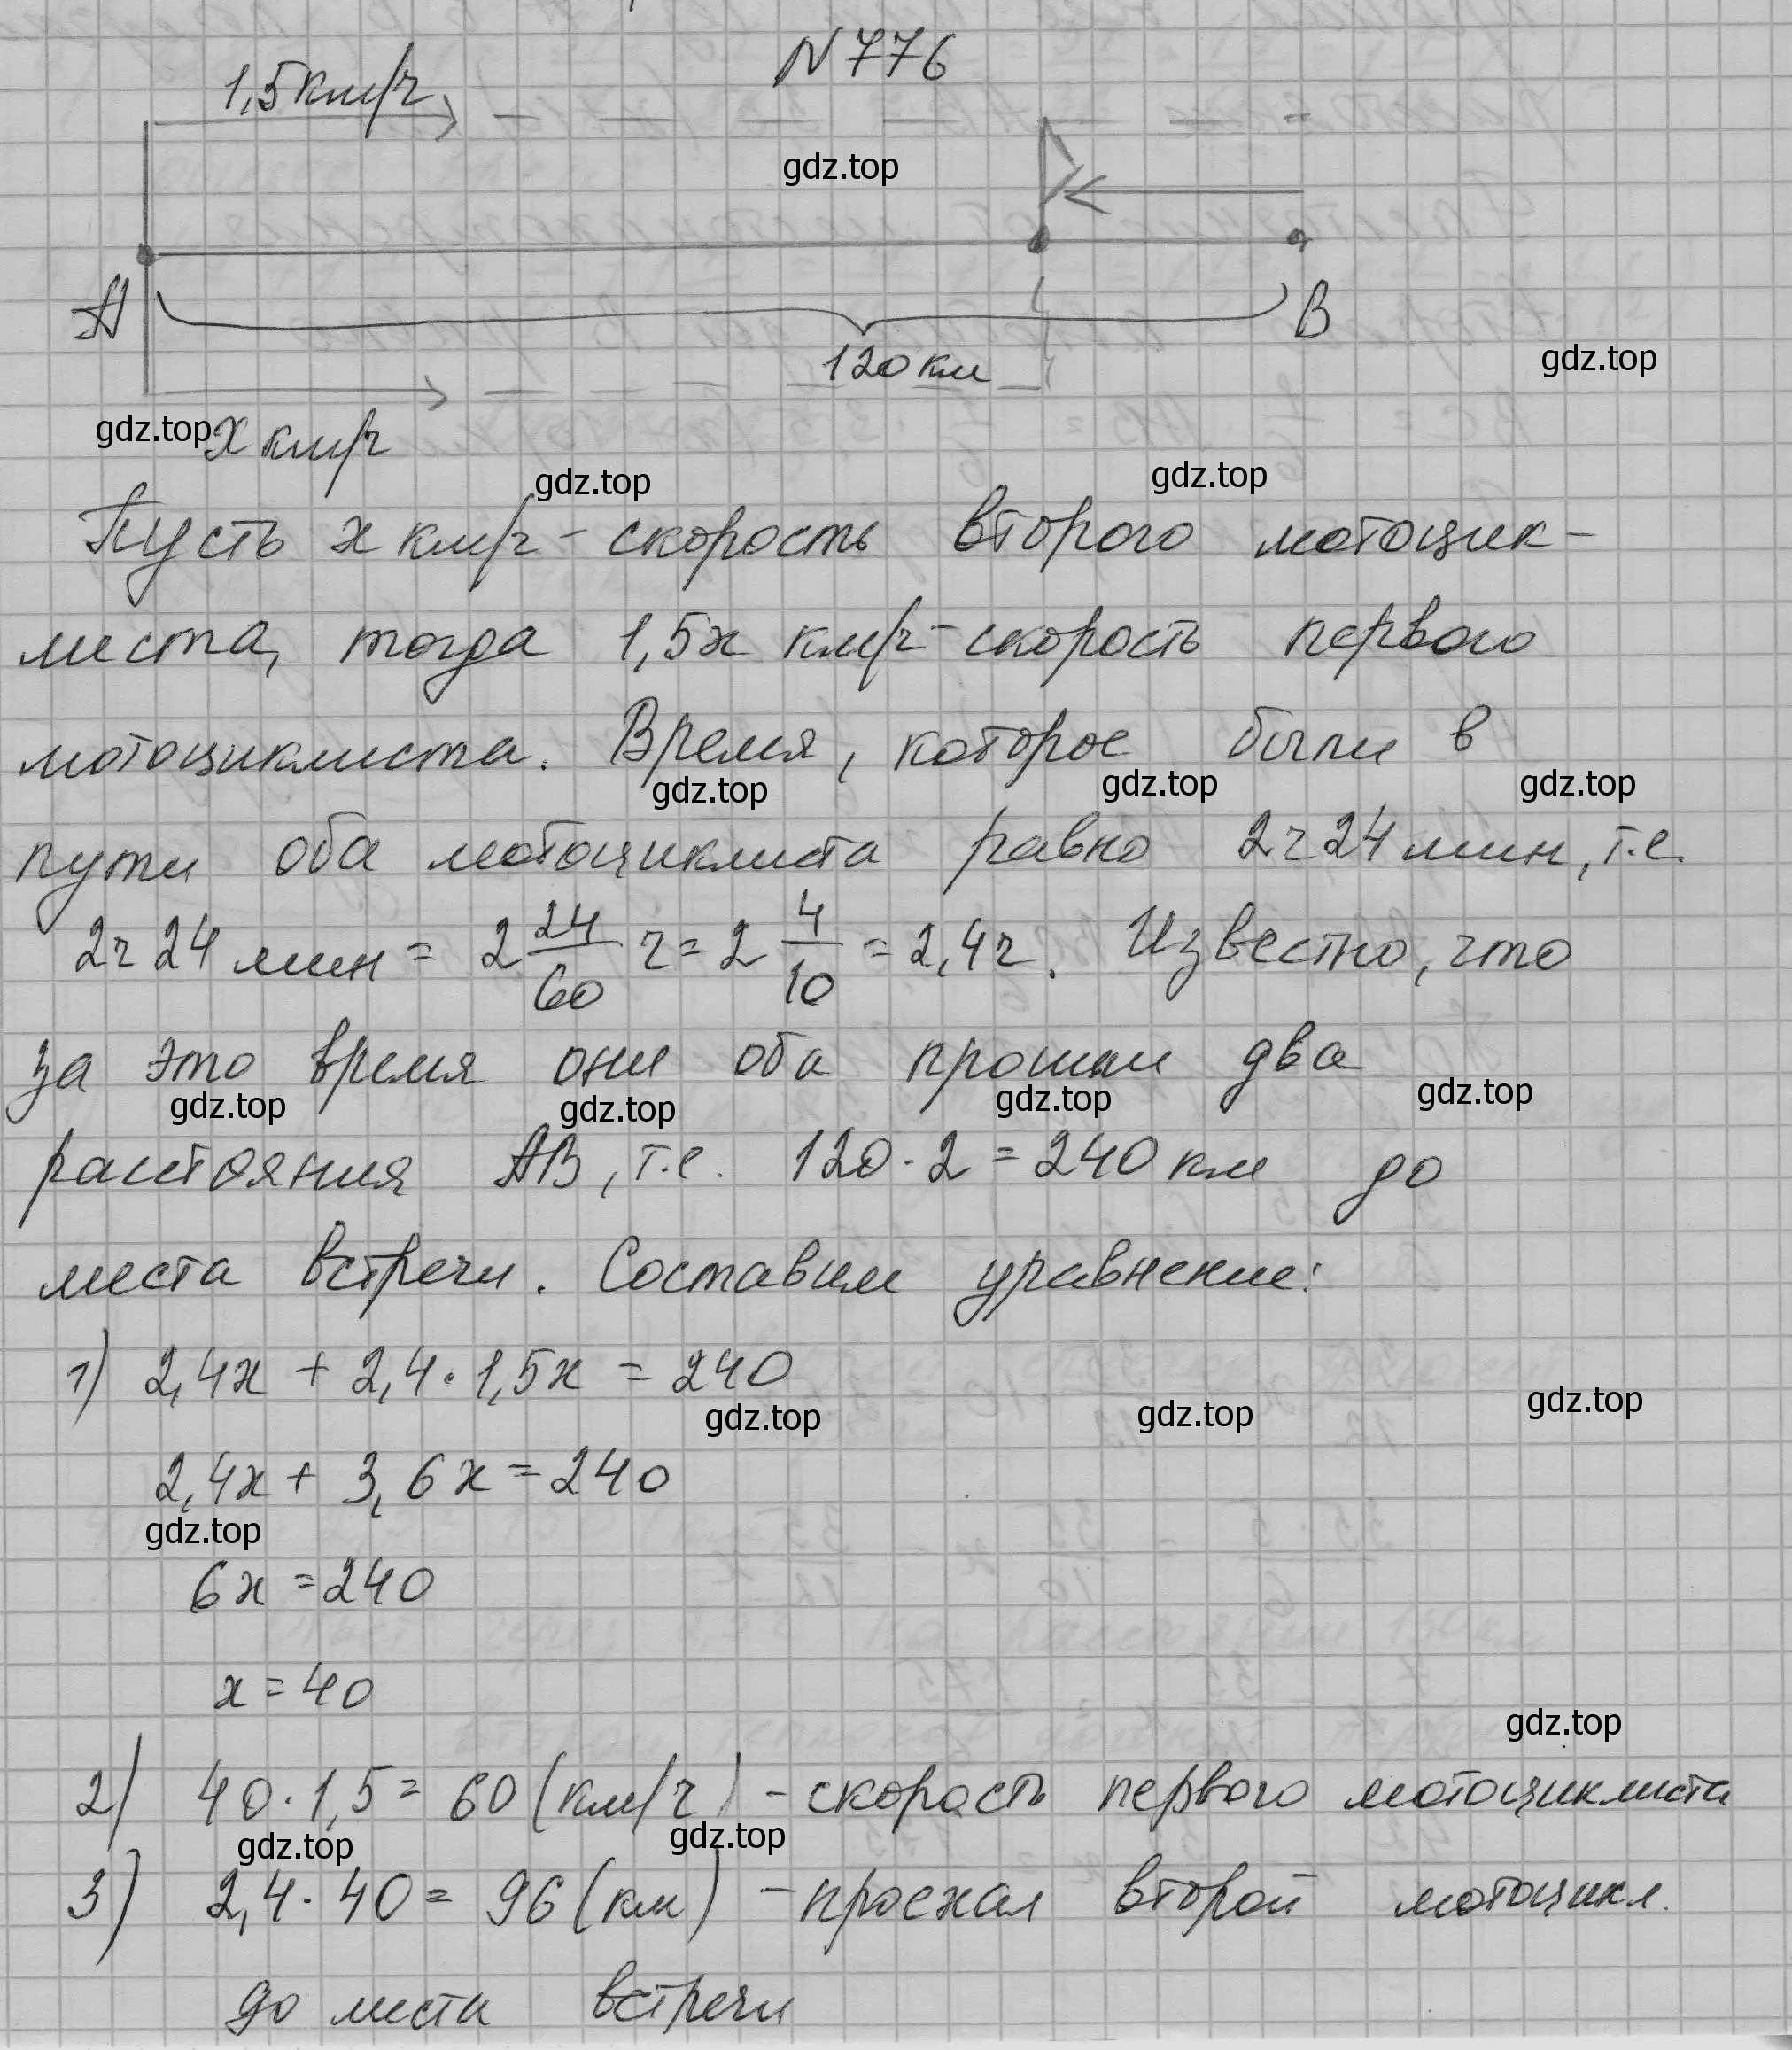 N 776
1,5 км/ч
gdz.top
A
B
120 км
gdz.top
gdz.top
x км/ч
gdz.top
gdz.top
Пусть x км/ч - скорость второго мотоцик-
листа, тогда 1,5x км/ч - скорость первого
мотоциклиста. Время, которое были в
gdz.top gdz.top gdz.top
пути оба мотоциклиста равно 2ч 24 мин, т.е.
2ч 24 мин = 2 24/60 ч = 2 4/10 = 2,4ч. Известно, что
за это время они оба прошли два
gdz.top gdz.top gdz.top gdz.top
расстояния AB, т.е. 120 · 2 = 240 км до
места встречи. Составим уравнение:
1) 2,4x + 2,4 · 1,5x = 240
gdz.top gdz.top gdz.top
2,4x + 3,6x = 240
gdz.top
6x = 240
x = 40
gdz.top
2) 40 · 1,5 = 60 (км/ч) - скорость первого мотоциклиста
gdz.top gdz.top
3) 2,4 · 40 = 96 (км) - проехал второй мотоцикл.
до места встречи